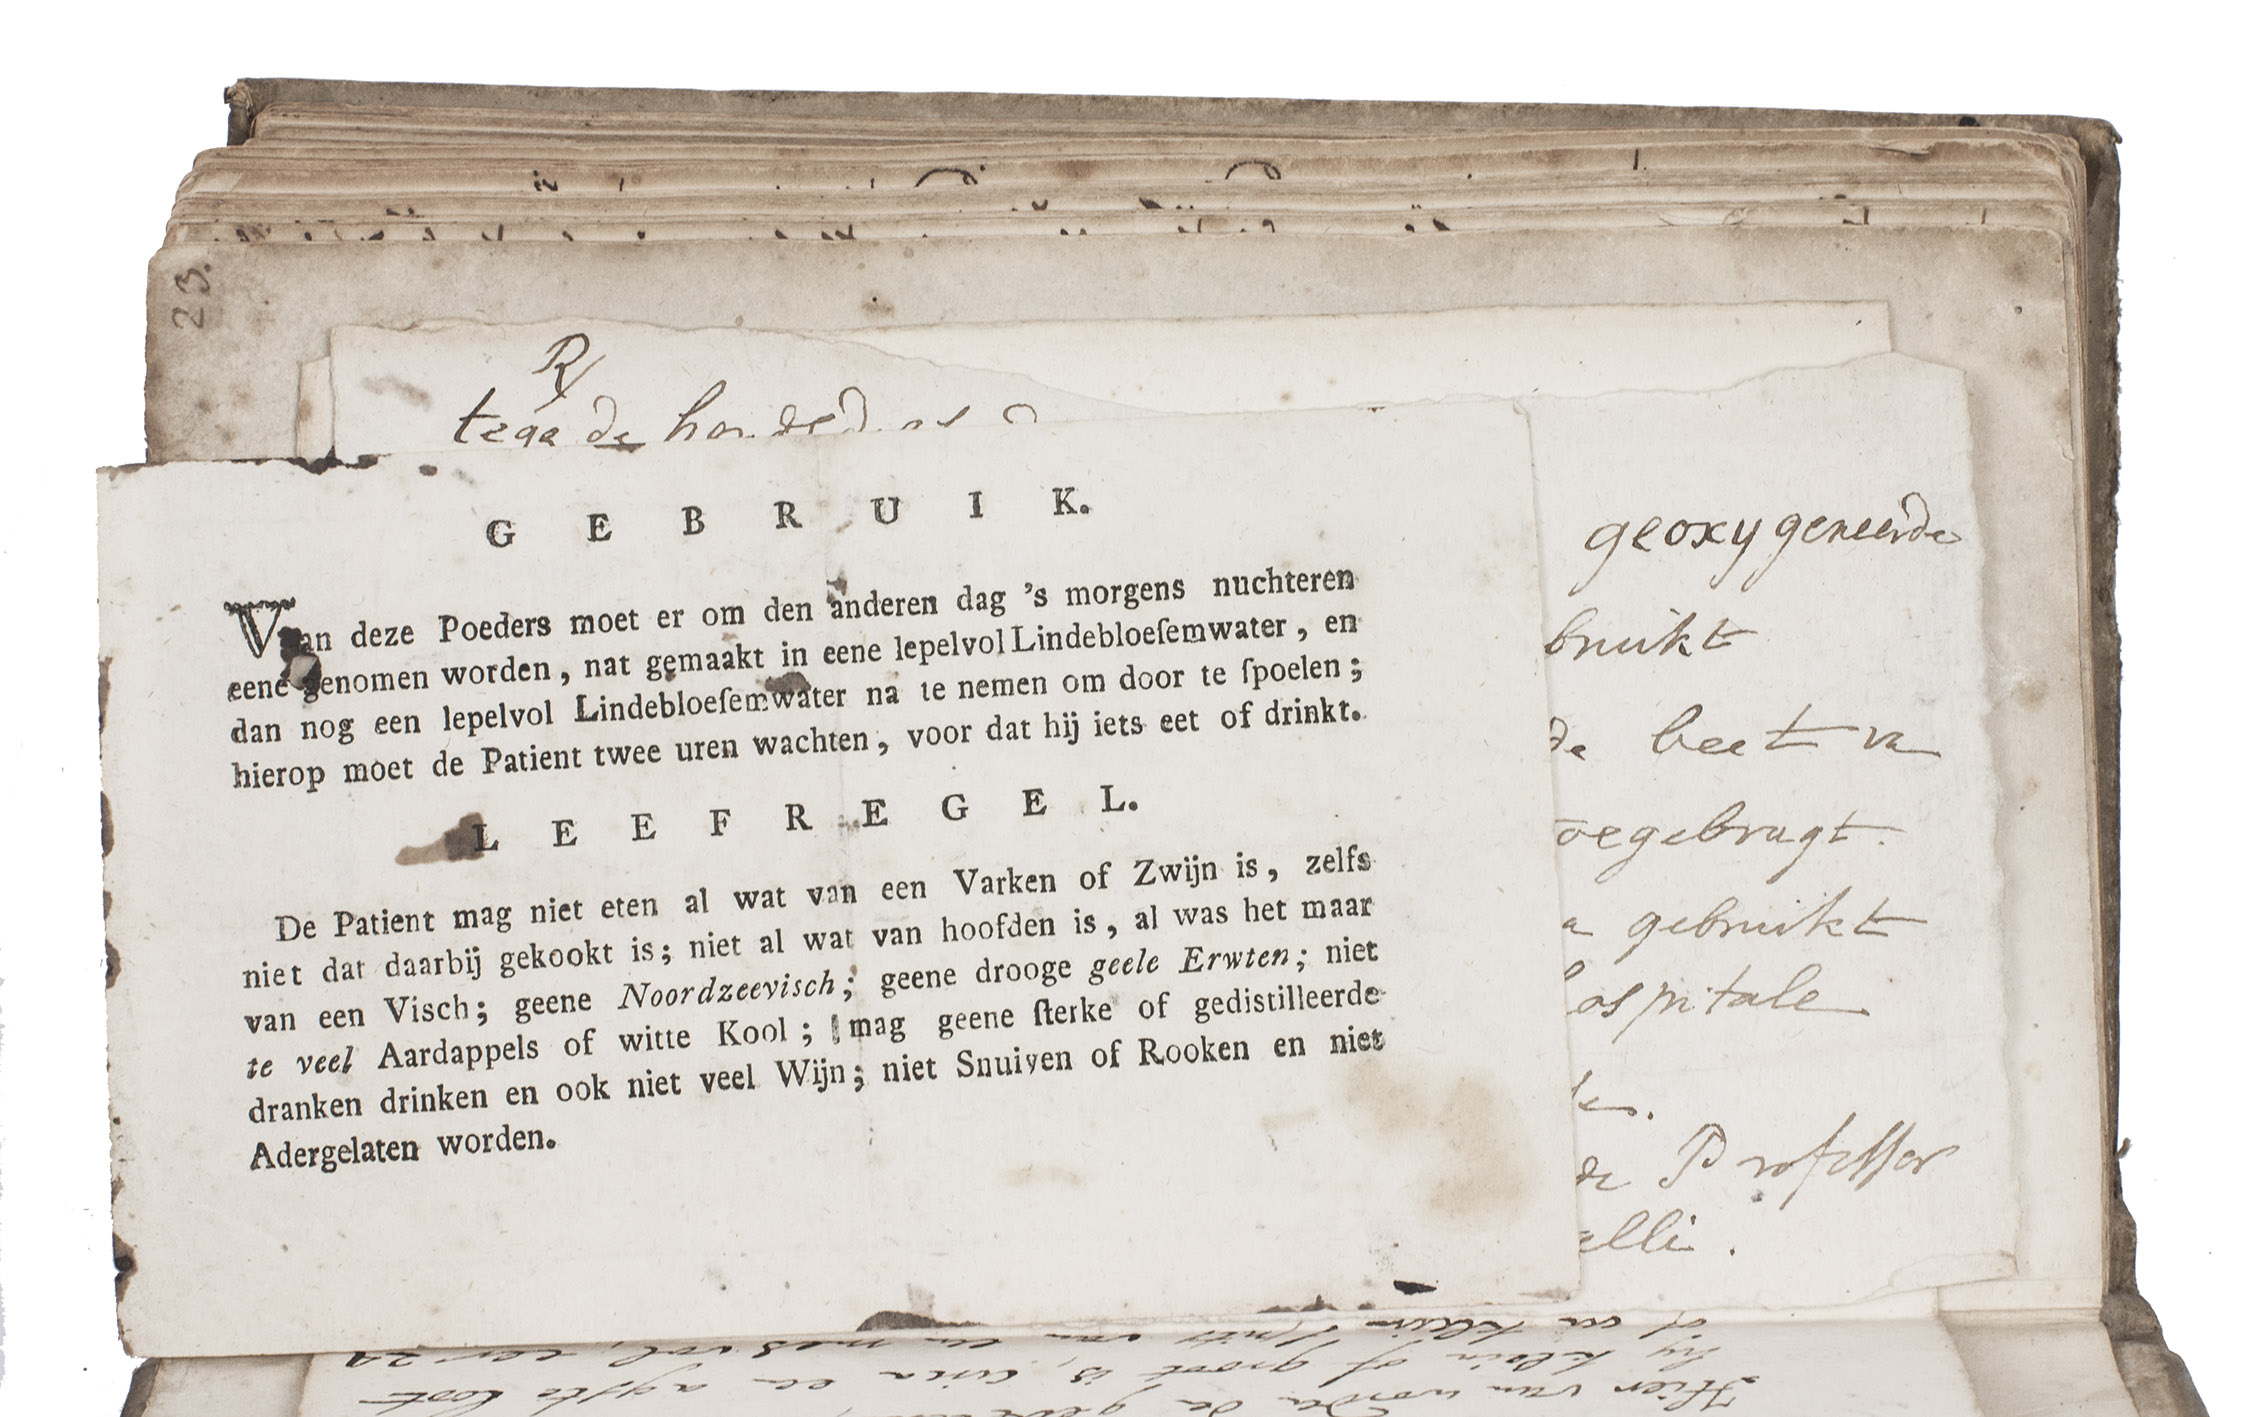 23.
R
tega de
GEBRUIK.
Van deze Poeders moet er om den anderen dag 's morgens nuchteren
eene genomen worden, nat gemaakt in eene lepelvol Lindebloeſemwater, en
dan nog een lepelvol Lindebloeſemwater na te nemen om door te ſpoelen;
hierop moet de Patient twee uren wachten, voor dat hij iets eet of drinkt.
LEEFREGEL.
De Patient mag niet eten al wat van een Varken of Zwijn is, zelfs
niet dat daarbij gekookt is; niet al wat van hoofden is, al was het maar
van een Visch; geene Noordzeevisch; geene drooge geele Erwten; niet
te veel Aardappels of witte Kool; mag geene ſterke of gedistilleerde
dranken drinken en ook niet veel Wijn; niet Snuiven of Rooken en niet
Adergelaten worden.
geoxygeneerde
bruikt
de beet va
oegebragt.
a gebruikt
ospitale
de Professor
elli.
of en klein
hij klein of groot is, circa een agste loot
Hier van worde